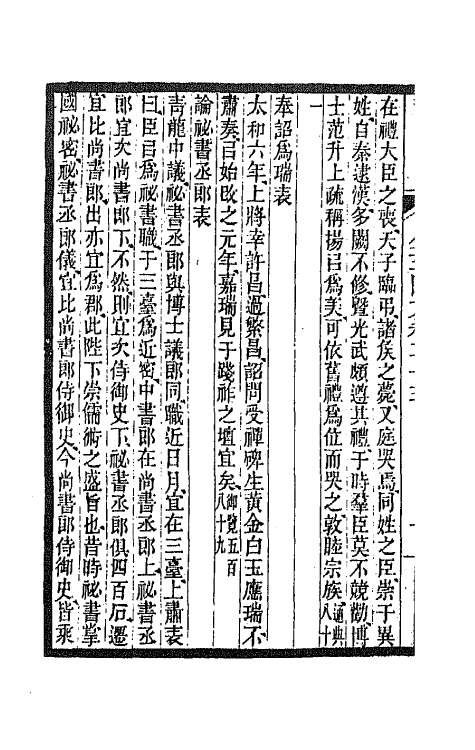 在禮大臣之喪天子臨弔諸矦之薨又庭哭焉同姓之臣崇于異
姓自秦逮漢多闕不修曁光武頗遵其禮于時羣臣莫不競勸博
士范升上疏稱揚㠯爲美可依舊禮爲位而哭之敦睦宗族通典八十
一
奉詔爲瑞表
太和六年上將幸許昌過繁昌詔問受禪碑生黃金白玉應瑞不
肅奏㠯始改之元年嘉瑞見于踐祚之壇宜矣御覽五百八十九
論祕書丞郎表
青龍中議祕書丞郎與博士議郎同職近日月宜在三臺上肅表
曰臣㠯爲祕書職于三臺爲近密中書郎在尚書丞郎上祕書丞
郎宜次尚書郎下不然則宜次侍御史下祕書丞郎俱四百石遷
宜比尚書郎出亦宜爲郡此陛下崇儒術之盛旨也昔時祕書掌
國祕密祕書丞郎儀宜比尚書郎侍御史今尚書郎侍御史皆乘